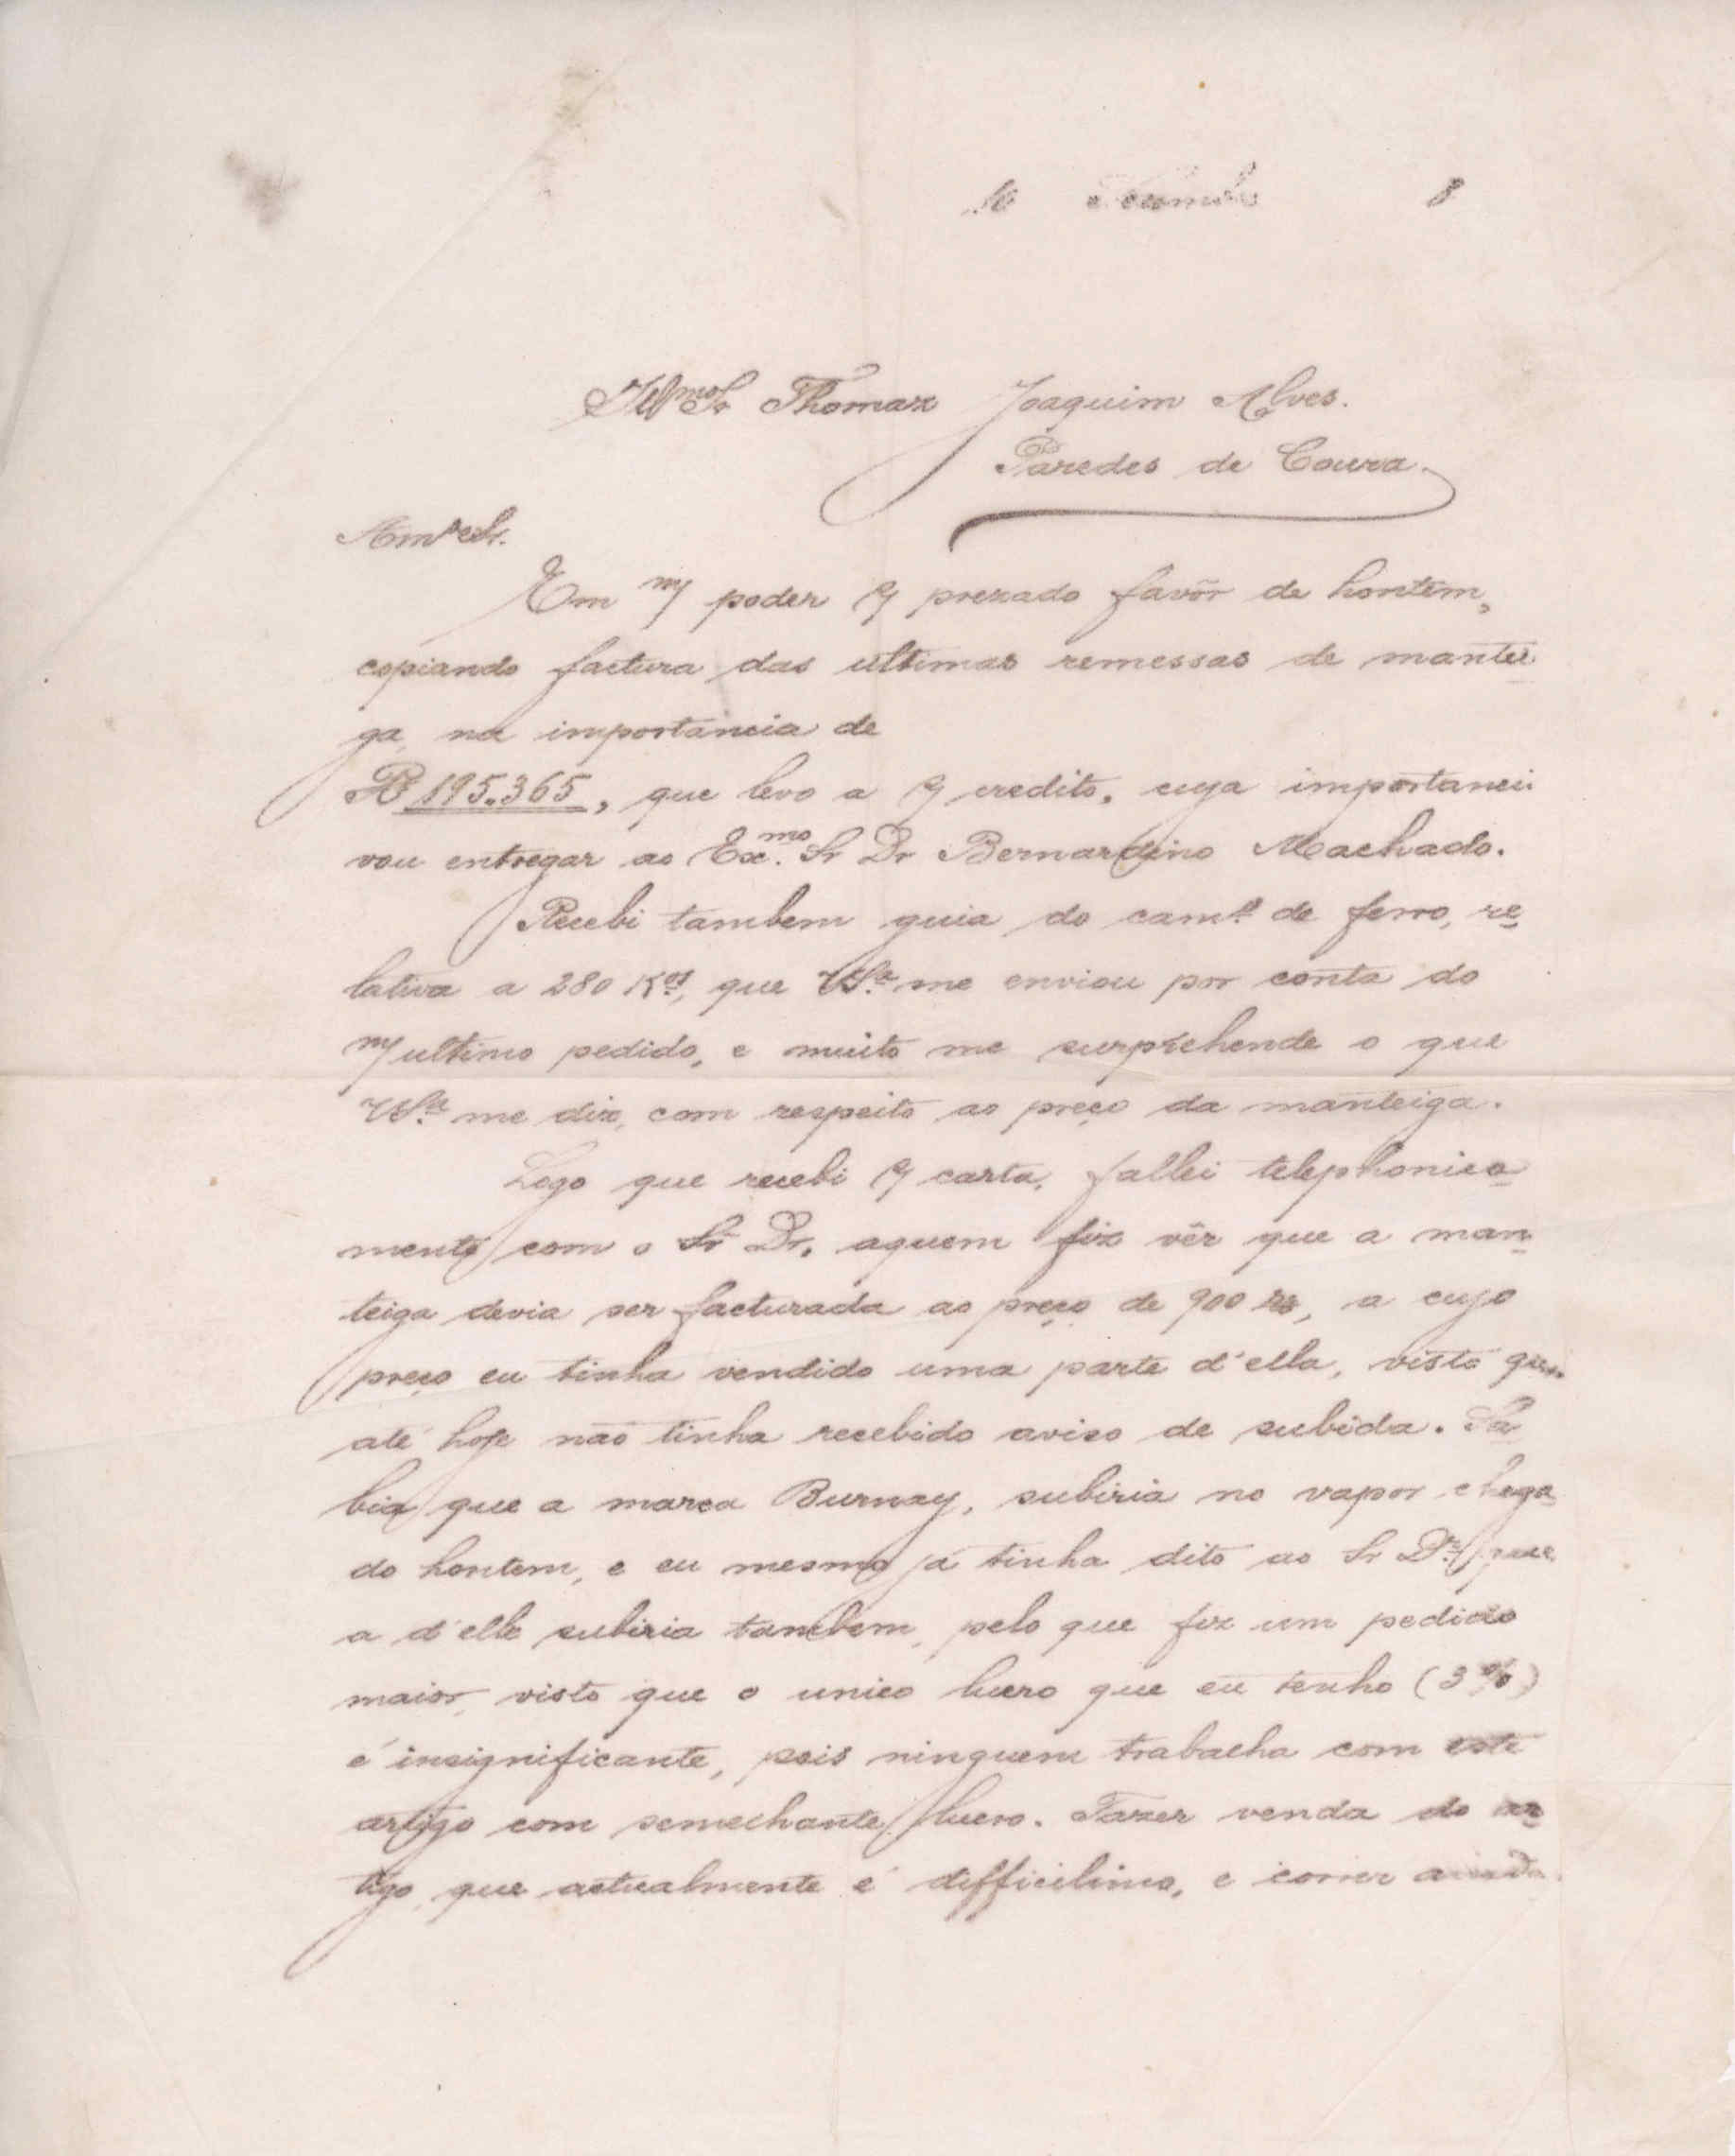 10 8
Illmo Sr Thomaz Joaquim Alves.
Paredes de Coura.
Amo e Sr.
Em m/ poder s/ prezado favôr de hontem,
copiando factura das ultimas remessas de mantei
ga, na importancia de
Rs 195.365, que levo a s/ credito, cuja importanci
vou entregar ao Exmo. Sr Dr Bernardino Machado.
Recebi tambem guia do camo. de ferro, re-
lativa a 280 Kos, que VSa. me enviou por conta do
m/ ultimo pedido, e muito me surprehende o que
VSa. me diz, com respeito ao preço da manteiga.
Logo que recebi s/ carta, fallei telephonica-
mente com o Sr Dr, aquem fiz vêr que a man-
teiga devia ser facturada ao preço de 900 rs, a cujo
preço eu tinha vendido uma parte d'ella, visto que
até hoje não tinha recebido aviso de subida. Sa-
bia que a marca Burnay, subiria no vapor chega-
do hontem, e eu mesmo já tinha dito ao Sr Dr. que
a d'elle subiria tambem, pelo que fiz um pedido
maior, visto que o unico lucro que eu tenho (3 %)
é insignificante, pois ninguem trabalha com este
artigo com semelhante lucro. Fazer venda do ar-
tigo, que actualmente é difficilimo, e correr ainda